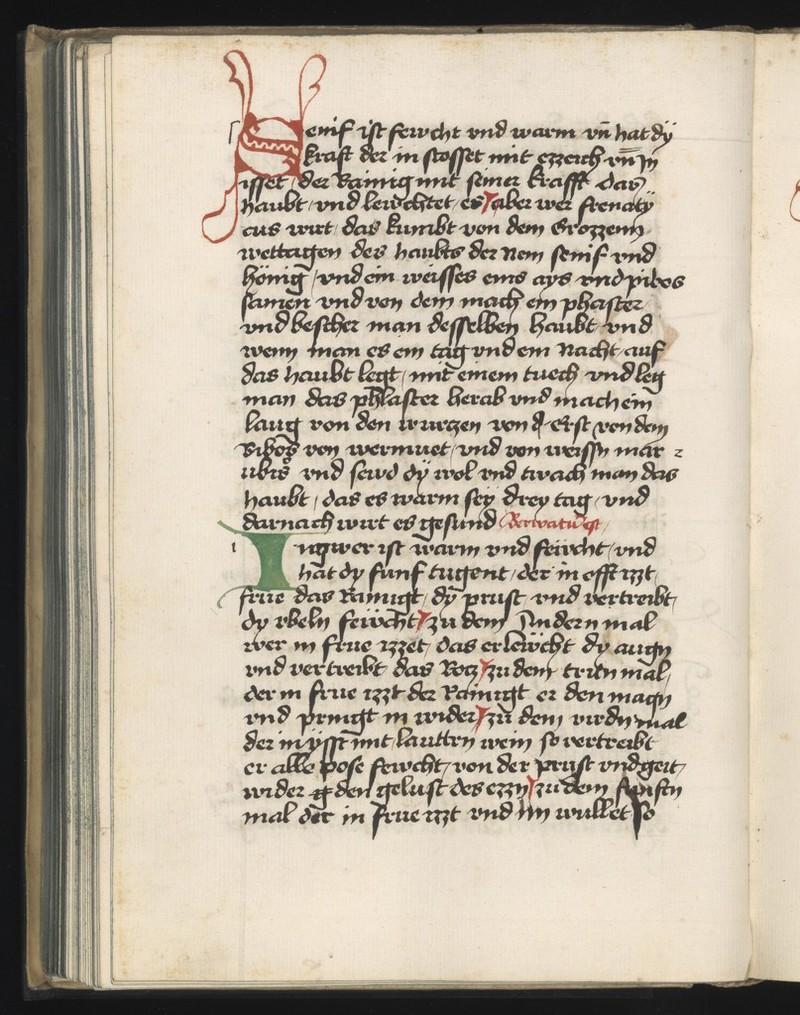 Senif ist fewcht vnd warm vn̄ hat dÿ
kraft der in stosset mit ezzeich vn̄ in
isset / der Rainig mit seiner krafft das
haubt / vnd lewchtet / es / aber wer frenaty
cus wirt / das kumbt von dem Grozzenn
wettagen des haubts der Nem senif vnd
hönig / vnd ein weisses eins ays vnd pibos
samen vnd von dem mach ein phlaster
vnd bescher man desselben haubt vnd
wenn man es ein tag vnd ein Nacht auf
das haubt legt / mit einem tuech vnd leg
man das phlaster herab vnd mach ein
laug von den wurczen von erst von dem
Bibos von wermuet / vnd von weissn mar
ubis vnd sewd dÿ wol vnd twach man das
haubt / das es warm seÿ drey tag / vnd
darnach wirt es gesund
Ingwer ist warm vnd fewcht / vnd
hat dy funf tugent / der in efft izzt
frue das Rainigt / dÿ prust vnd vertreibt
dy vbeln fewcht / zu dem Andern mal
wer in frue izzet das erlewcht dy augn
vnd vertreibt das Rocz / zu dem tritn mal /
der in frue izzt der Rainigt er den magn
vnd pringt in wider / zu dem virdn mal
der in ÿsst mit lauttrn wein so vertreibt
er alle pose fewcht / von der prust vnd geit
wider den gelust des ezzn / zu dem funftn
mal der in frue izzt vnd wullet so